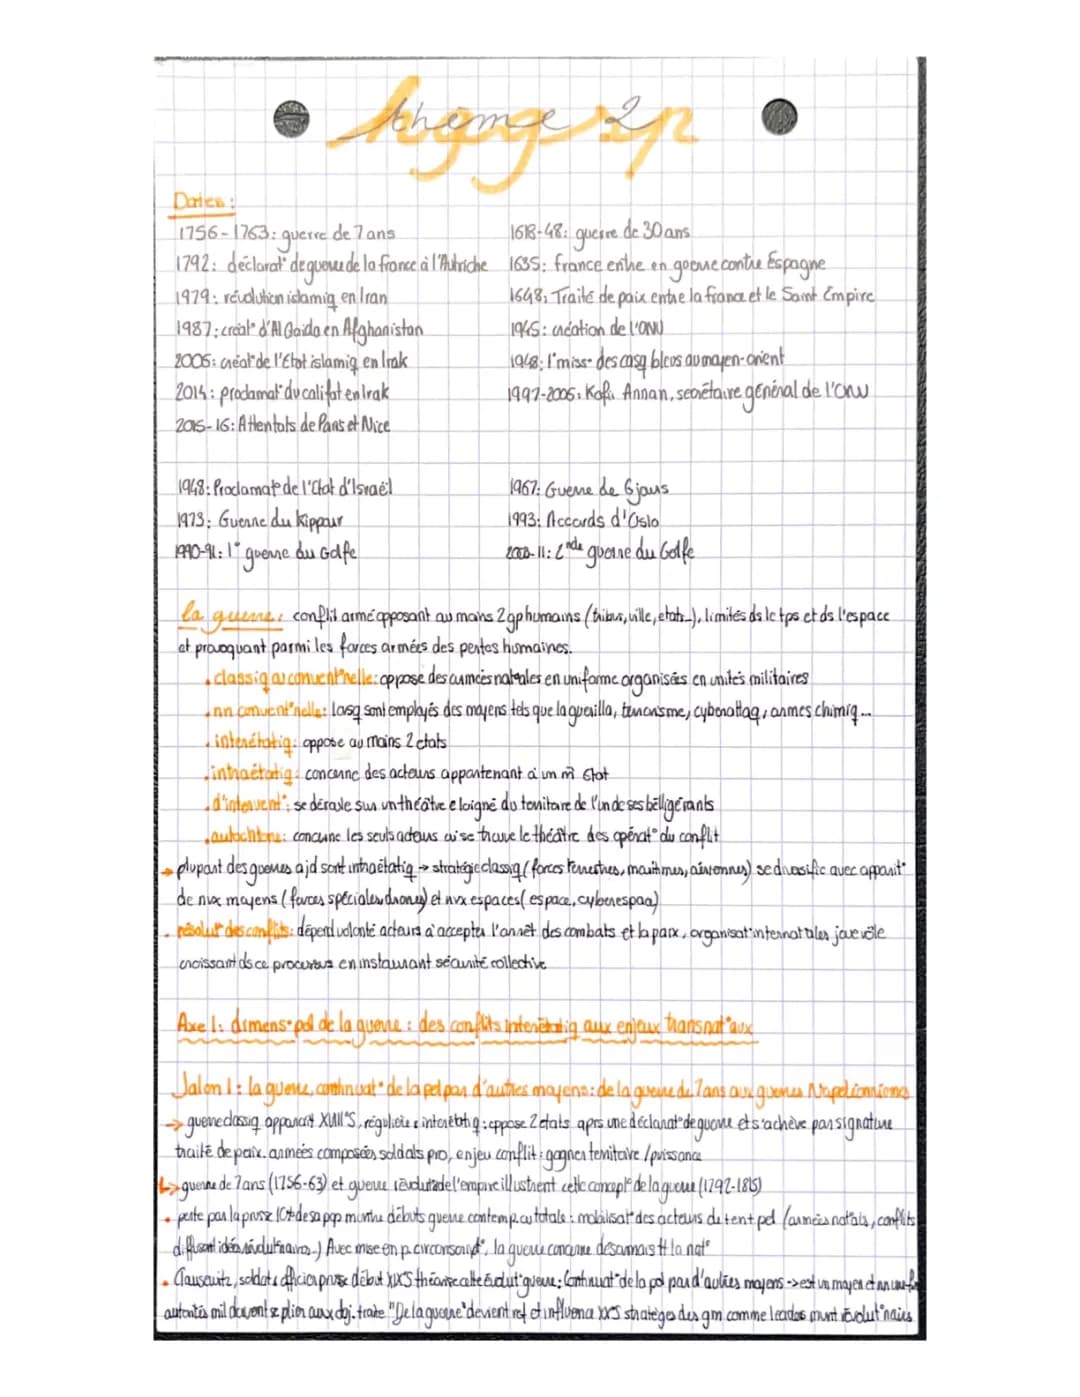 hggsp
thème 2
Dates :
1756-1763: guerre de 7 ans
1792: déclarat° de guerre de la france à l'Autriche
1979: révolution islamiq en Iran
1987: créat° d'Al Qaida en Afghanistan
2006: créat° de l'Etat islamiq en Irak
2014: proclamat° du califat en Irak
2015-16: Attentats de Paris et Nice
1618-48: guerre de 30 ans
1635: france entre en guerre contre Espagne
1648: Traité de paix entre la france et le Saint Empire
1945: création de l'ONU
1948: 1° miss° des casq bleus au moyen-orient
1997-2006: Kofi Annan, secrétaire général de l'ONU
1948: Proclamat° de l'Etat d'Israël
1973: Guerre du Kippour
1990-91: 1° guerre du Golfe
1967: Guerre de 6 jours
1993: Accords d'Oslo
2003-11: 2nde guerre du Golfe
la guerre: conflit armé opposant au moins 2 gp humains (tribus, ville, etats...), limités ds le tps et ds l'espace
et provoquant parmi les forces armées des pertes humaines.
• classiq ou convent°nelle: oppose des armées nat°ales en uniforme organisées en unités militaires
• nn convent°nelle: lorsq sont employés des moyens tels que la guerilla, terrorisme, cyberattaq, armes chimiq...
• interétatiq: oppose au moins 2 etats
• intraétatiq: concerne des acteurs appartenant à un m̂ Etat
• d'intervent°: se déroule sur un théâtre eloigné du territoire de l'un de ses belligérants
• autochtone: concerne les seuls acteurs où se trouve le théâtre des opérat° du conflit
→ plupart des guerres ajd sont intraétatiq → stratégie classiq (forces terrestres, maritimes, aériennes) se diversifie avec apparit°
de nvx moyens (forces spéciales, drones) et nvx espaces (espace, cyberespace)
• résolut° des conflits: dépend volonté acteurs à accepter l'arrêt des combats et la paix, organisat° internat°ales joue rôle
croissant ds ce processus en instaurant sécurité collective
Axe 1: dimens° pol de la guerre : des conflits interétatiq aux enjeux transnat°aux
Jalon 1: la guerre, continuat° de la pol par d'autres moyens: de la guerre de 7 ans aux guerres Napoléonniennes
→ guerre classiq apparait XVIII°S, régulière & interétatiq : oppose 2 etats aprs une déclarat° de guerre et s'achève par signature
traité de paix. armées composées soldats pro, enjeu conflit: gagner territoire/puissance
↳ guerre de 7 ans (1756-63) et guerre révolut° de l'empire illustrent cette concept° de la guerre (1792-1815)
• perte par la prusse 10% de sa pop montre débuts guerre contemp ou totale: mobilisat° des acteurs de tent pol (armées nat°ales, conflits
diffusent idées révolut°naires.) Avec mise en p. circonscript°, la guerre concerne désormais tt la nat°
• Clausewitz, soldat & officier prusse début XIXS théorise cette évolut° guerre: Continuat° de la pol par d'autres moyens → est un moyen et nn une fin
autorités mil doivent se plier aux obj. traité "De la guerre" devient ref et influença XXS stratèges des gm comme leaders mvnt révolut°naires